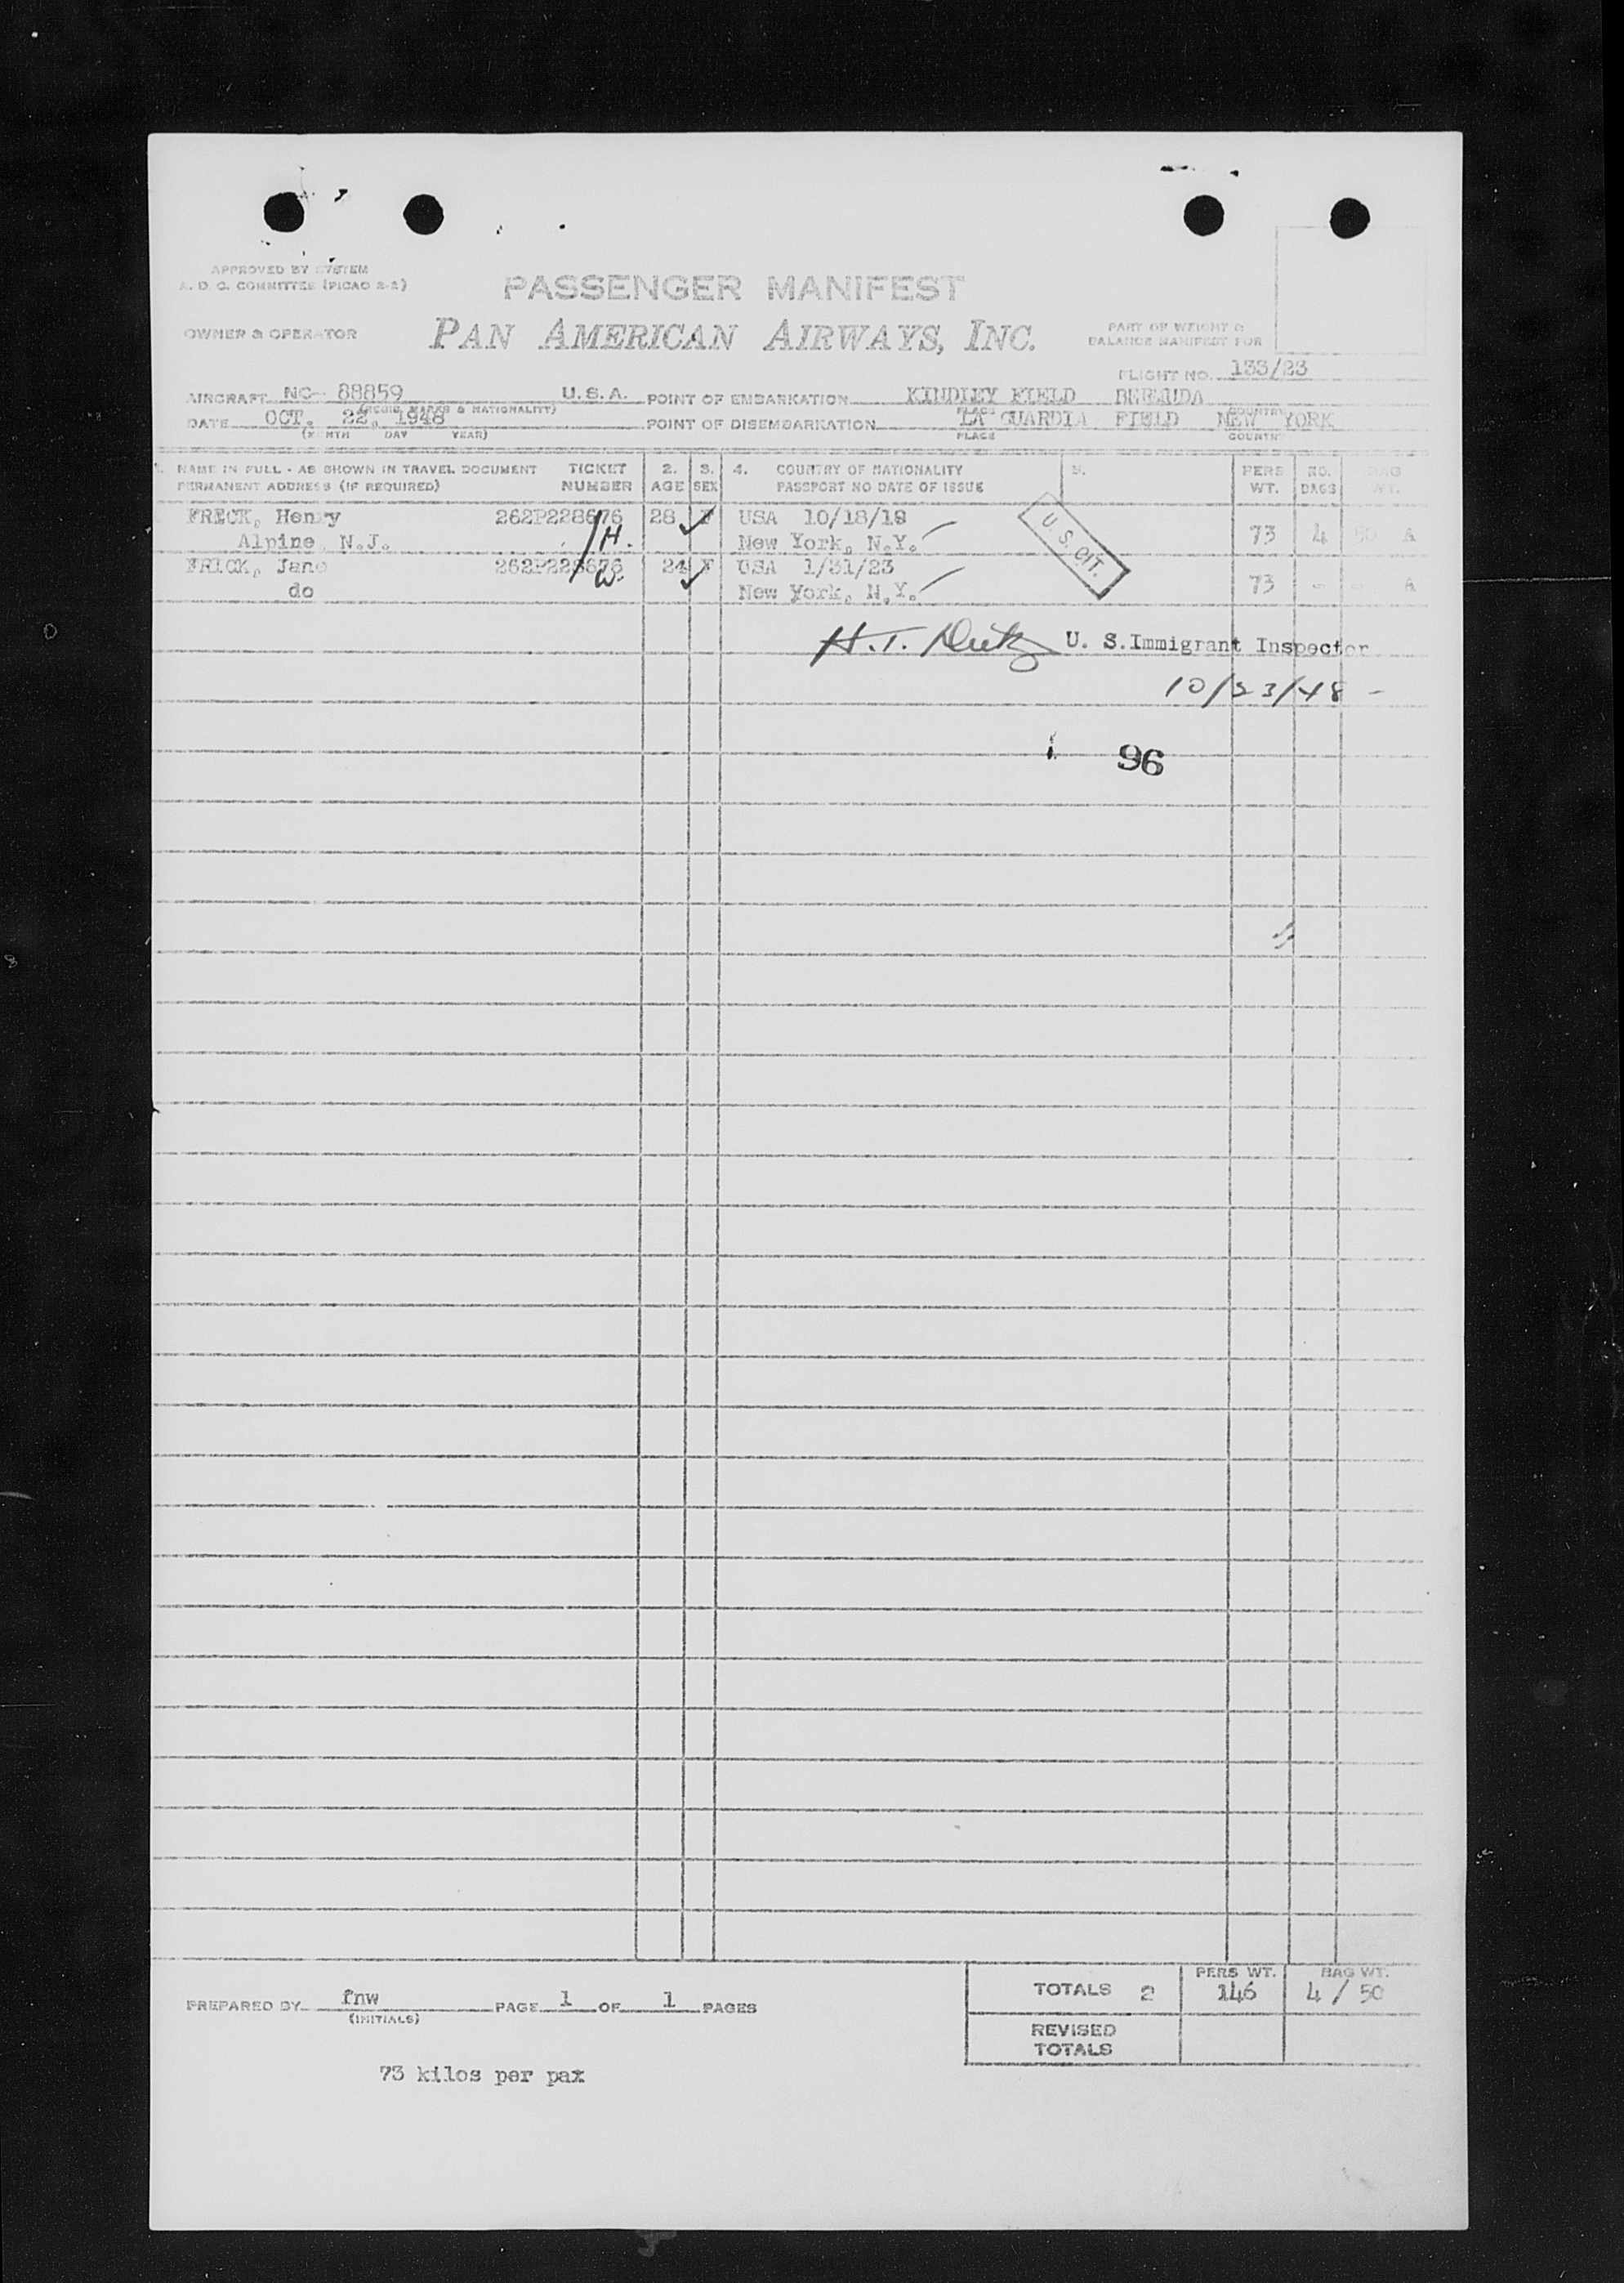 APPROVED BY SYSTEM
A. D. C. COMMITTEE (PICAO 2-2)
PASSENGER MANIFEST
OWNER & OPERATOR
PAN AMERICAN AIRWAYS, INC.
PART OF WEIGHT &
BALANCE MANIFEST FOR
FLIGHT NO. 133/23
AIRCRAFT NC- 88859 U.S.A. POINT OF EMBARKATION KINDLEY FIELD BERMUDA
MARKS & NATIONALITY) PLACE COUNTRY
DATE OCT. 22, 1948 POINT OF DISEMBARKATION LA GUARDIA FIELD NEW YORK
(MONTH DAY YEAR) PLACE COUNTRY
1. NAME IN FULL - AS SHOWN IN TRAVEL DOCUMENT TICKET 2. 3. 4. COUNTRY OF NATIONALITY 5. PERS NO. BAG
PERMANENT ADDRESS (IF REQUIRED) NUMBER AGE SEX PASSPORT NO DATE OF ISSUE WT. BAGS WT.
FRECK, Henry 262P228676 28 F USA 10/18/19
Alpine, N.J. /H. New York, N.Y. 73 4 50 A
U S. CIT.
FRICK, Jane 262P228676 24 F USA 1/31/23
do /W. New York, N.Y. 73 - - A
H. T. U. S. Immigrant Inspector
10/23/48 -
96
TOTALS 2 PERS WT. 146 BAG WT. 4 / 50
PREPARED BY fnw PAGE 1 OF 1 PAGES
(INITIALS)
REVISED
TOTALS
73 kilos per pax